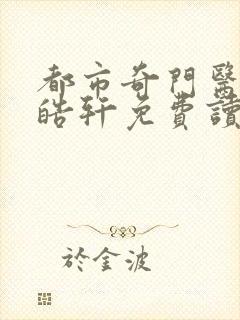 都市奇門醫
皓軒免費讀
於金波